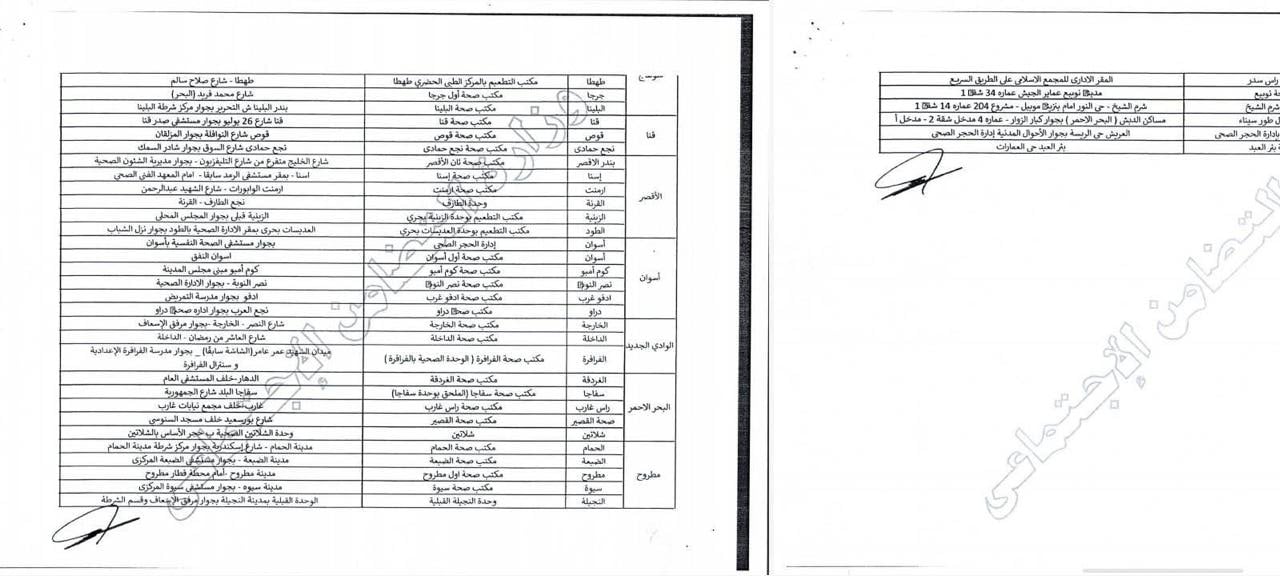 طهطا مكتب التطعيم بالمركز الطبى الحضري طهطا طهطا - شارع صلاح سالم
جرجا مكتب صحة أول جرجا شارع محمد فريد (البحر)
البلينا مكتب صحة البلينا بندر البلينا ش التحرير بجوار مركز شرطة البلينا
قنا قنا مكتب صحة قنا قنا شارع 26 يوليو بجوار مستشفى صدر قنا
قوص مكتب صحة قوص قوص شارع النوافلة بجوار المزلقان
نجع حمادى مكتب صحة نجع حمادى نجع حمادى شارع السوق بجوار شادر السمك
الأقصر بندر الاقصر مكتب صحة ثان الأقصر شارع الخليج متفرع من شارع التليفزيون - بجوار مديرية الشئون الصحية
إسنا مكتب صحة إسنا اسنا - بمقر مستشفى الرمد سابقا - امام المعهد الفنى الصحي
ارمنت مكتب صحة ارمنت ارمنت الوابورات - شارع الشهيد عبدالرحمن
القرنة وحدة الطارف نجع الطارف - القرنة
الزينية مكتب التطعيم بوحدة الزينية بحري الزينية قبلى بجوار المجلس المحلى
الطود مكتب التطعيم بوحدة العديسات بحري العديسات بحرى بمقر الادارة الصحية بالطود بجوار نزل الشباب
أسوان أسوان إدارة الحجر الصحى بجوار مستشفى الصحة النفسية بأسوان
أسوان مكتب صحة أول أسوان اسوان النفق
كوم أمبو مكتب صحة كوم أمبو كوم أمبو مبنى مجلس المدينة
نصر النو مكتب صحة نصر النو نصر النوبة - بجوار الادارة الصحية
ادفو غرب مكتب صحة ادفو غرب ادفو بجوار مدرسة التمريض
دراو مكتب صح دراو نجع العرب بجوار اداره صح دراو
الوادي الجديد الخارجة مكتب صحة الخارجة شارع النصر - الخارجة -بجوار مرفق الإسعاف
الداخلة مكتب صحة الداخلة شارع العاشر من رمضان - الداخلة
الفرافرة مكتب صحة الفرافرة ( الوحدة الصحية بالفرافرة ) ميدان الشهيد عمر عامر(الشاشة سابقًا) _ بجوار مدرسة الفرافرة الإعدادية
و سنترال الفرافرة
البحر الاحمر الغردقة مكتب صحة الغردقة الدهار-خلف المستشفى العام
سفاجا مكتب صحة سفاجا (الملحق بوحدة سفاجا) سفاجا البلد شارع الجمهورية
راس غارب مكتب صحة راس غارب غارب-خلف مجمع نيابات غارب
صحة القصير مكتب صحة القصير شارع بورسعيد خلف مسجد السنوسى
شلاتين شلاتين وحدة الشلاتين الصحية ب حجر الأساس بالشلاتين
مطروح الحمام مكتب صحة الحمام مدينة الحمام - شارع إسكندرية بجوار مركز شرطة مدينة الحمام
الضبعة مكتب صحة الضبعة مدينة الضبعة - بجوار مستشفى الضبعة المركزى
مطروح مكتب صحة اول مطروح مدينة مطروح -أمام محطة قطار مطروح
سيوة مكتب صحة سيوة مدينة سيوه - بجوار مستشفى سيوة المركزى
النجيلة وحدة النجيلة القبلية الوحدة القبلية بمدينة النجيلة بجوار مرفق الإسعاف وقسم الشرطة
وزارة التضامن الإجتماعى
راس سدر المقر الادارى للمجمع الاسلامى على الطريق السريع
نوبيع نوبيع عماير الجيش عماره 34 شق 1
شرم الشيخ شرم الشيخ - حى النور امام موبيل - مشروع 204 عماره 14 شق 1
طور سيناء مساكن الدبش ( البحر الاحمر ) بجوار كبار الزوار - عماره 4 مدخل شقة 2 - مدخل أ
بادارة الحجر الصحى العريش حى الريسة بجوار الأحوال المدنية إدارة الحجر الصحى
بئر العبد بئر العبد حى العمارات
التضامن الإجتماعى